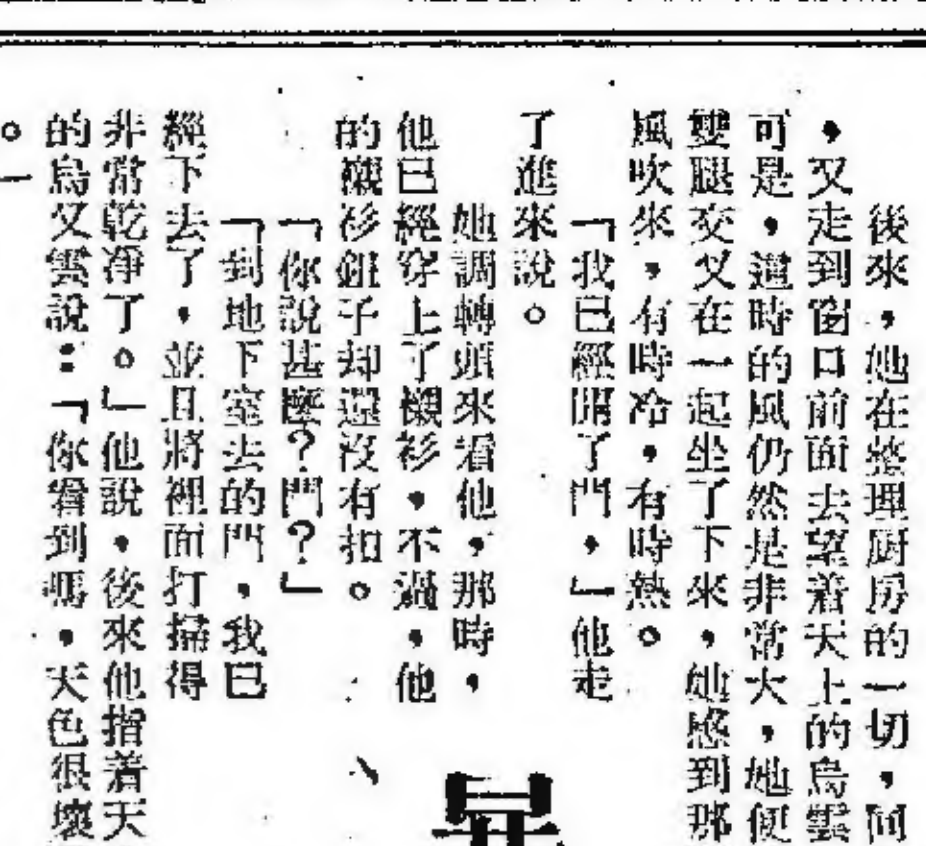 後來，她在整理廚房的一切，同
，又走到窗口前面去望着天上的烏雲
可是，這時的風仍然是非常大，她便
雙腿交叉在一起坐了下來，她感到那
風吹來，有時冷，有時熱。
「我已經開了門，」他走
了進來說。
她調轉頭來看他，那時，
他已經穿上了襯衫，不過，他
的襯衫鈕子却還沒有扣。
「你說甚麼？門？」
「到地下室去的門，我已
經下去了，並且將裡面打掃得
非常乾淨了。」他說，後來他指着天
的烏又雲說：「你看到嗎，天色很壞
。」